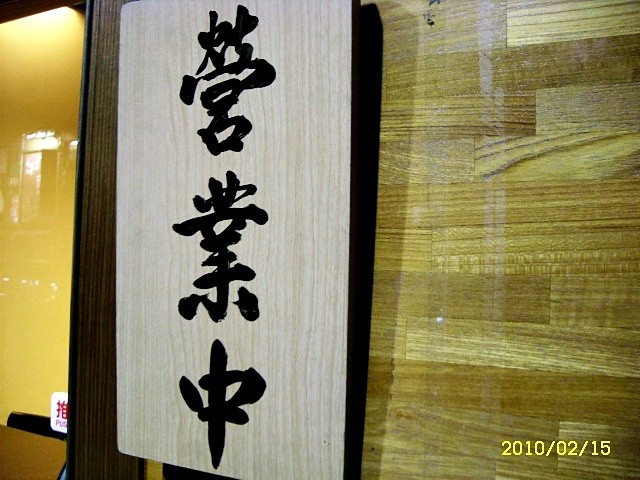 營業中
推
PUSH
2010/02/15